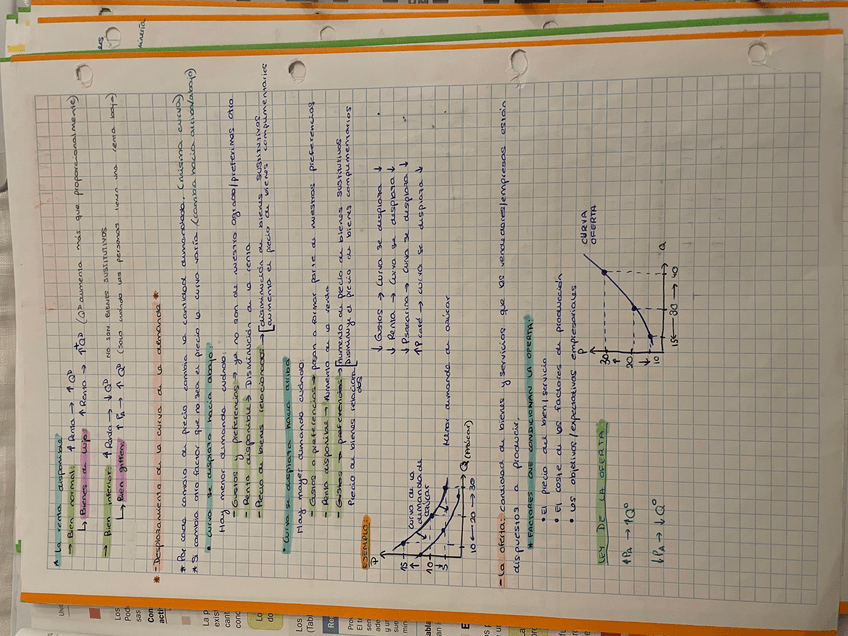 * La renta disponible:
→ Bien normal: ↑ Renta → ↑ Qᴰ
↳ Bienes de lujo: ↑ Renta → ↑⁺Qᴰ (Qᴰ aumenta más que proporcionalmente)
→ Bien inferior: ↑ Renta → ↓ Qᴰ NO SON BIENES SUSTITUTIVOS
↳ Bien giffen: ↑ Pₐ → ↑ Qᴰ (solo cuando las personas tienen una renta baja)
* - Desplazamiento de la curva de la demanda *
* Por cada cambio de precio cambia la cantidad demandada. (misma curva)
* Si cambia otro factor que no sea el precio la curva varía (cambia hacia arriba/abajo)
• Curva se desplaza hacia abajo:
Hay menor demanda cuando:
- Gustos y preferencias → ya no son de nuestro agrado/preferimos otro
- Renta disponible → Disminución de la renta
- Precio de bienes relacionados → disminución de bienes sustitutivos
aumenta el precio de bienes complementarios
• Curva se desplaza hacia arriba
Hay mayor demanda cuando:
- Gustos o preferencias → pasan a formar parte de nuestras preferencias
- Renta disponible → Aumento de la renta
- Gustos → preferencias → Aumento del precio de bienes sustitutivos
Precio de bienes relacionados Disminuye el precio de bienes complementarios
EJEMPLO:
P
curva de la
demanda de
azúcar
15
10
5
10 ← 20 → 30
Q (azúcar)
↓ Gustos → Curva se desplaza ↓
↓ Renta → Curva se desplaza ↓
↓ Psacarina → curva se desplaza ↓
↑ P café → curva se desplaza ↓
Menor demanda de azúcar
- La oferta: cantidad de bienes y servicios que los vendedores/empresas están
dispuestos a producir.
* FACTORES QUE CONDICIONAN LA OFERTA:
• El precio del bien/servicio
• El coste de los factores de producción
• Los objetivos/expectativas empresariales
LEY DE LA OFERTA:
↑ Pₐ → ↑ Qᴼ
↓ Pₐ → ↓ Qᴼ
P
30
20
10
15 ← 30 → 40
Q
CURVA
OFERTA